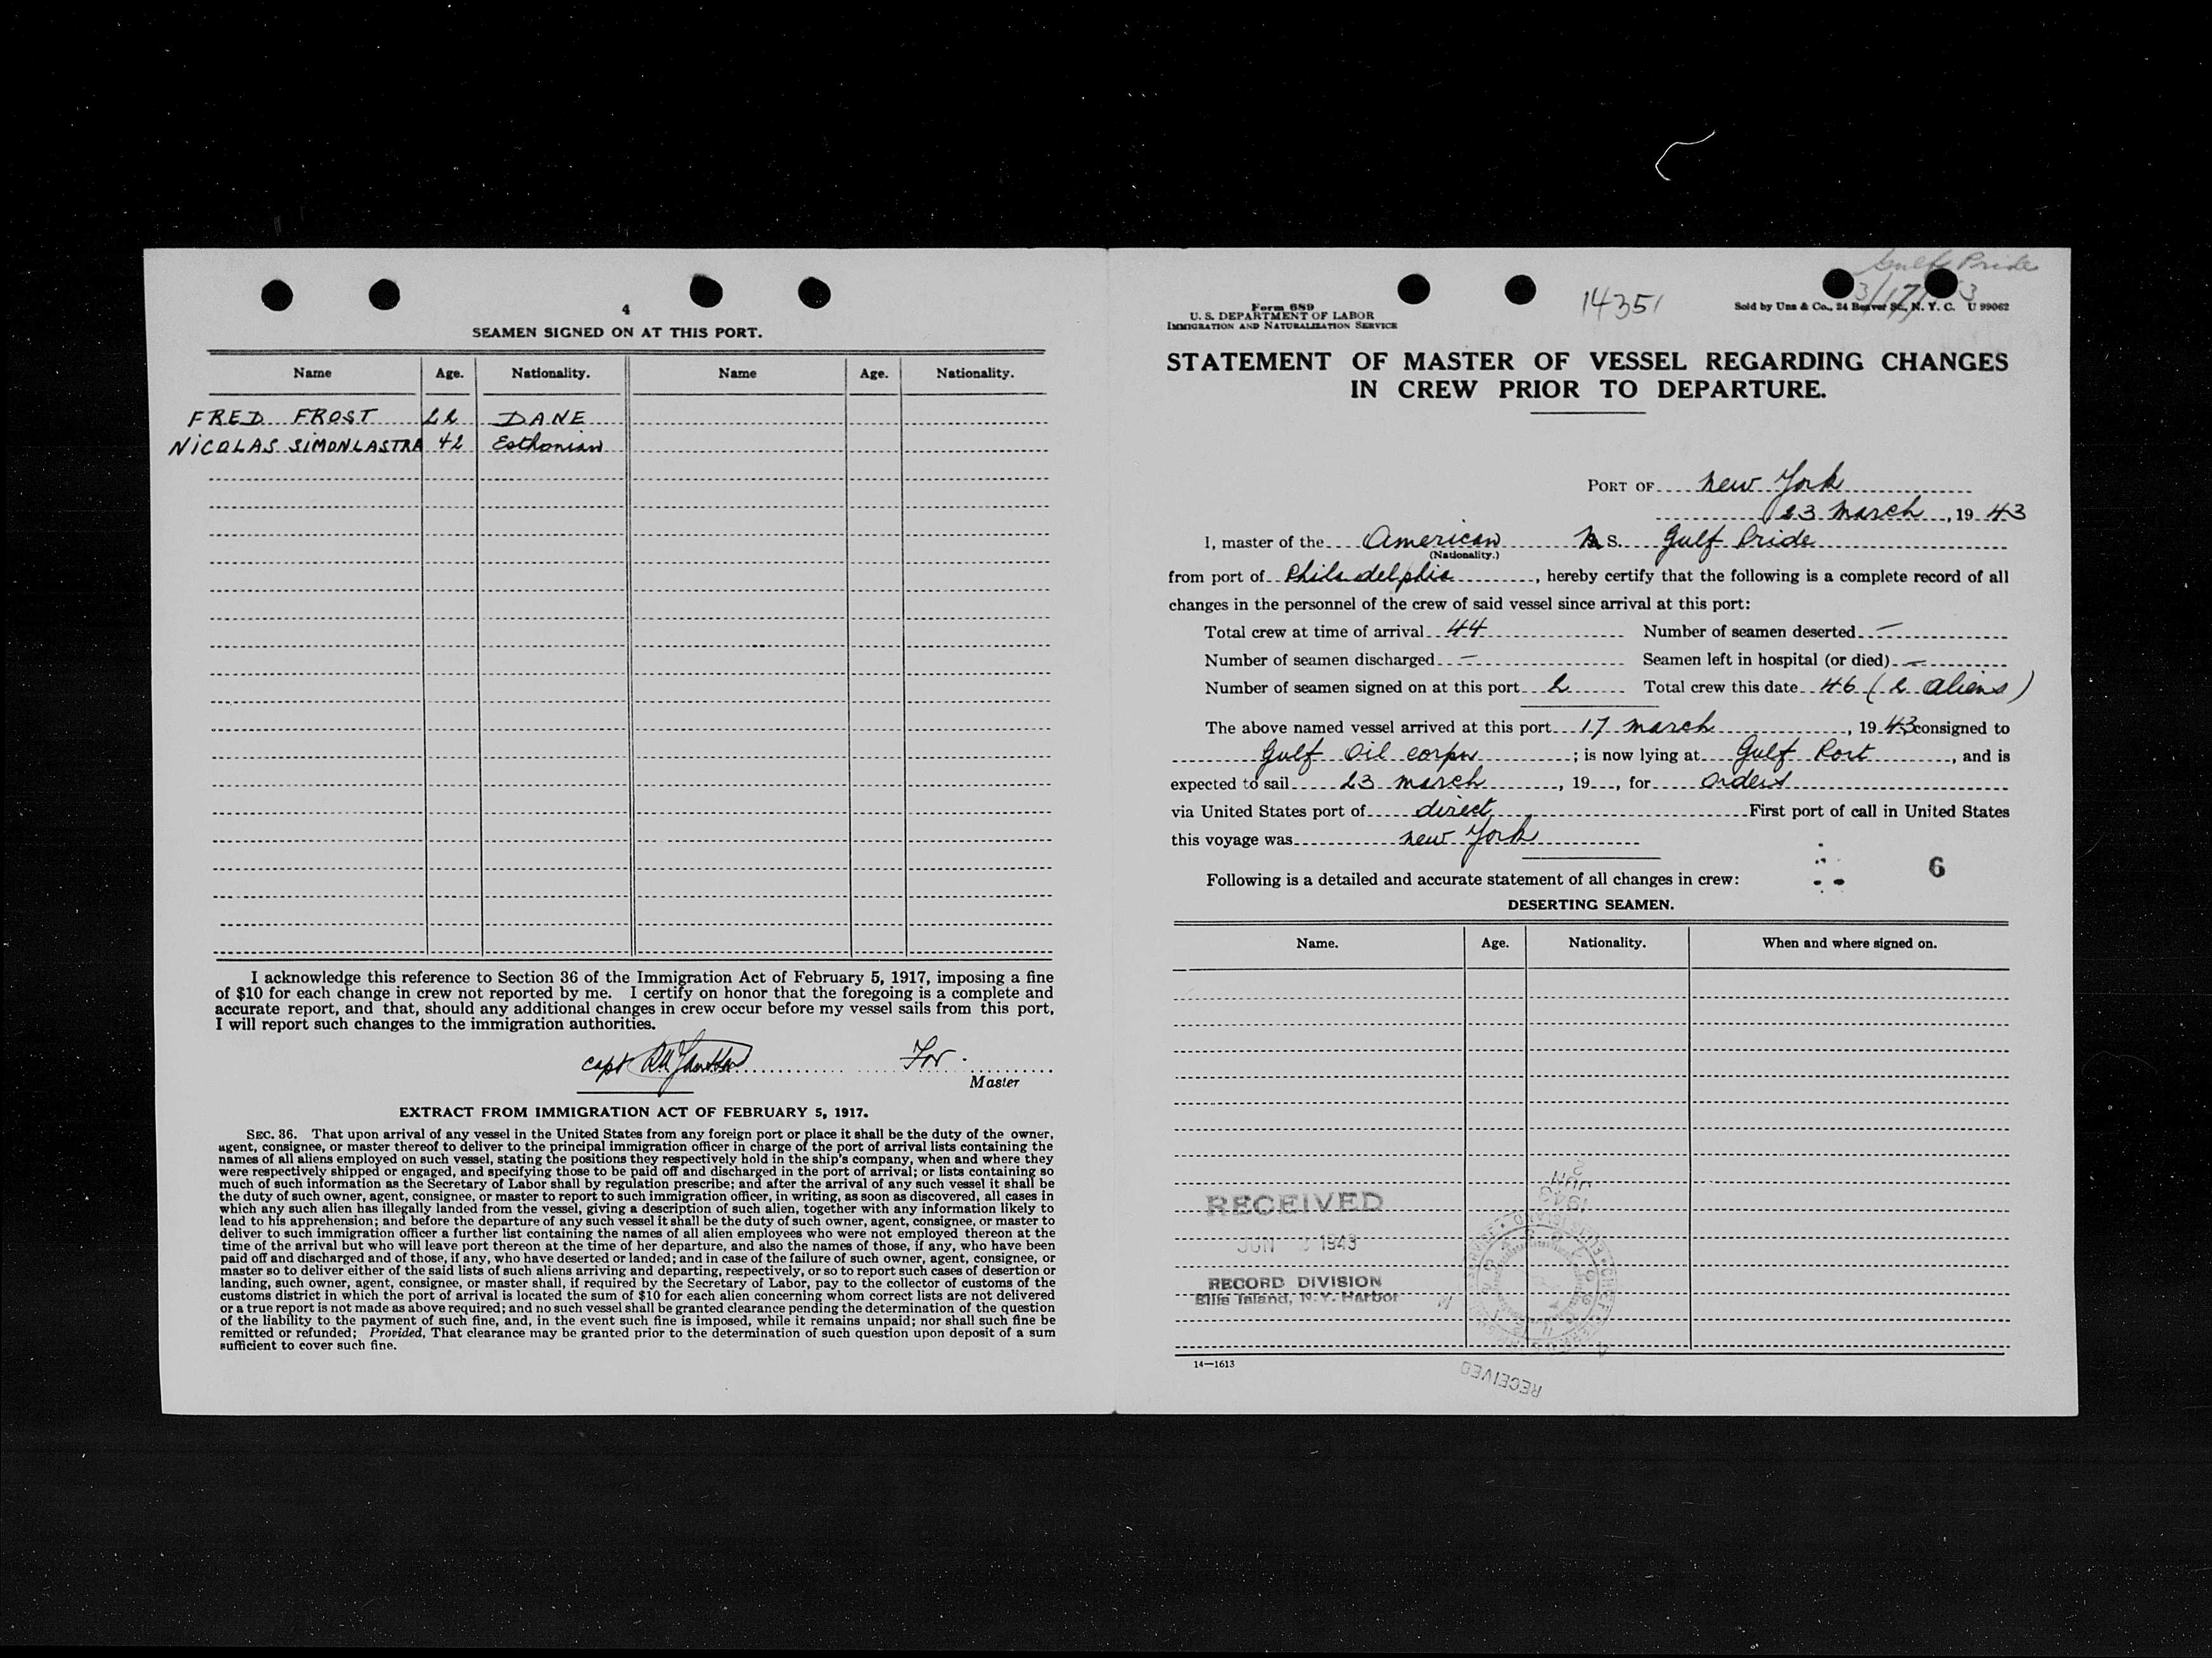 4
SEAMEN SIGNED ON AT THIS PORT.
Name Age. Nationality. Name Age. Nationality.
FRED FROST 22 DANE
NICOLAS SIMONLASTRA 42 Esthonian
I acknowledge this reference to Section 36 of the Immigration Act of February 5, 1917, imposing a fine
of $10 for each change in crew not reported by me. I certify on honor that the foregoing is a complete and
accurate report, and that, should any additional changes in crew occur before my vessel sails from this port,
I will report such changes to the immigration authorities.
capt For
Master
EXTRACT FROM IMMIGRATION ACT OF FEBRUARY 5, 1917.
SEC. 36. That upon arrival of any vessel in the United States from any foreign port or place it shall be the duty of the owner,
agent, consignee, or master thereof to deliver to the principal immigration officer in charge of the port of arrival lists containing the
names of all aliens employed on such vessel, stating the positions they respectively hold in the ship's company, when and where they
were respectively shipped or engaged, and specifying those to be paid off and discharged in the port of arrival; or lists containing so
much of such information as the Secretary of Labor shall by regulation prescribe; and after the arrival of any such vessel it shall be
the duty of such owner, agent, consignee, or master to report to such immigration officer, in writing, as soon as discovered, all cases in
which any such alien has illegally landed from the vessel, giving a description of such alien, together with any information likely to
lead to his apprehension; and before the departure of any such vessel it shall be the duty of such owner, agent, consignee, or master to
deliver to such immigration officer a further list containing the names of all alien employees who were not employed thereon at the
time of the arrival but who will leave port thereon at the time of her departure, and also the names of those, if any, who have been
paid off and discharged and of those, if any, who have deserted or landed; and in case of the failure of such owner, agent, consignee, or
master so to deliver either of the said lists of such aliens arriving and departing, respectively, or so to report such cases of desertion or
landing, such owner, agent, consignee, or master shall, if required by the Secretary of Labor, pay to the collector of customs of the
customs district in which the port of arrival is located the sum of $10 for each alien concerning whom correct lists are not delivered
or a true report is not made as above required; and no such vessel shall be granted clearance pending the determination of the question
of the liability to the payment of such fine, and, in the event such fine is imposed, while it remains unpaid; nor shall such fine be
remitted or refunded; Provided, That clearance may be granted prior to the determination of such question upon deposit of a sum
sufficient to cover such fine.
Gulf Pride
3/17/43
Form 689
U. S. DEPARTMENT OF LABOR
IMMIGRATION AND NATURALIZATION SERVICE
14351
Sold by Unz & Co., 24 Beaver St., N. Y. C. U 99062
STATEMENT OF MASTER OF VESSEL REGARDING CHANGES
IN CREW PRIOR TO DEPARTURE.
PORT OF New York
23 March, 19 43
I, master of the American M S. Gulf Pride
(Nationality.)
from port of Philadelphia, hereby certify that the following is a complete record of all
changes in the personnel of the crew of said vessel since arrival at this port:
Total crew at time of arrival 44 Number of seamen deserted —
Number of seamen discharged — Seamen left in hospital (or died) —
Number of seamen signed on at this port 2 Total crew this date 46 (2 aliens)
The above named vessel arrived at this port 17 March, 19 43 consigned to
Gulf Oil Corpn; is now lying at Gulf Port, and is
expected to sail 23 March, 19, for orders
via United States port of direct First port of call in United States
this voyage was New York
Following is a detailed and accurate statement of all changes in crew:
6
DESERTING SEAMEN.
Name. Age. Nationality. When and where signed on.
JUN 2
1943
RECEIVED
JUN 1943
RECORD DIVISION
Ellis Island, N.Y. Harbor
14—1613
RECEIVED